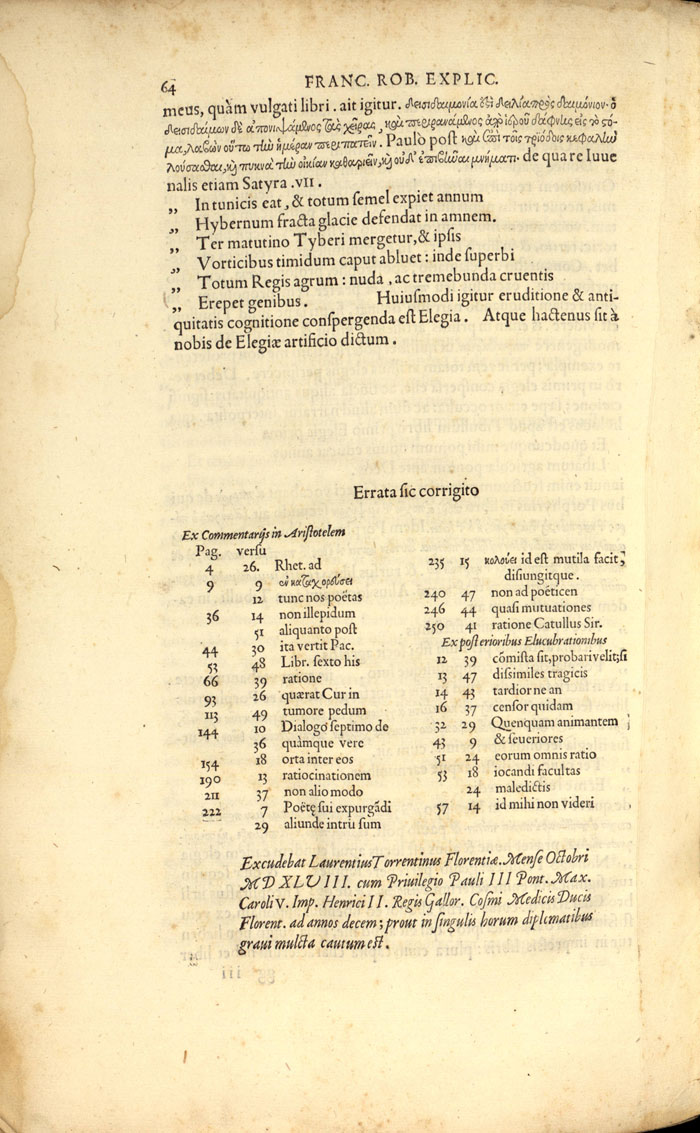 64 FRANC. ROB. EXPLIC.
meus, quàm vulgati libri. ait igitur. δεισιδαιμονία ἐστὶ δειλία πρὸς δαιμόνιον. ὁ
δεισιδαίμων δὲ ἀπονιψάμενος τὰς χεῖρας, καὶ περιρανάμενος ἀπὸ ἱεροῦ δάφνης εἰς τὸ ςό-
μα, λαβὼν οὕτω τὴν ἡμέραν περιπατεῖν. Paulò post καὶ ἐπὶ τοῖς τριόδοις κεφαλὴν
λούσασθαι, καὶ πυκνὰ τὴν οἰκίαν καθαριεῖν, καὶ οὐδ' ἐπιβῆναι μνήματι. de qua re Iuue
nalis etiam Satyra .VII.
„ In tunicis eat, & totum semel expiet annum
„ Hybernum fracta glacie defendat in amnem.
„ Ter matutino Tyberi mergetur, & ipsis
„ Vorticibus timidum caput abluet: inde superbi
„ Totum Regis agrum: nuda, ac tremebunda cruentis
„ Erepet genibus. Huiusmodi igitur eruditione & anti-
quitatis cognitione conspergenda est Elegia. Atque hactenus sit à
nobis de Elegiæ artificio dictum.
Errata sic corrigito
Ex Commentarijs in Aristotelem
Pag. versu
4 26. Rhet. ad
9 9
12 tunc nos poëtas
36 14 non illepidum
51 aliquanto post
44 30 ita vertit Pac.
53 48 Libr. sexto his
66 39 ratione
93 26 quærat Cur in
113 49 tumore pedum
144 10 Dialogo septimo de
36 quàmque vere
154 18 orta inter eos
190 13 ratiocinationem
211 37 non alio modo
222 7 Poëtę sui expurgãdi
29 aliunde intrũ sum
235 15 κολούει id est mutila facit,
disiungitque.
240 47 non ad poëticen
246 44 quasi mutuationes
250 41 ratione Catullus Sir.
Ex posterioribus Elucubrationibus
12 39 cõmista sit, probari velit; si
13 47 dissimiles tragicis
14 43 tardior ne an
16 37 censor quidam
32 29 Quenquam animantem
43 9 & seueriores
51 24 eorum omnis ratio
53 18 iocandi facultas
24 maledictis
57 14 id mihi non videri
Excudebat Laurentius Torrentinus Florentiæ. Mense Octobri
M D XLVIII. cum Privilegio Pauli III Pont. Max.
Caroli V. Imp. Henrici II. Regis Gallor. Cosmi Medicis Ducis
Florent. ad annos decem; prout in singulis horum diplomatibus
graui mulcta cautum est.